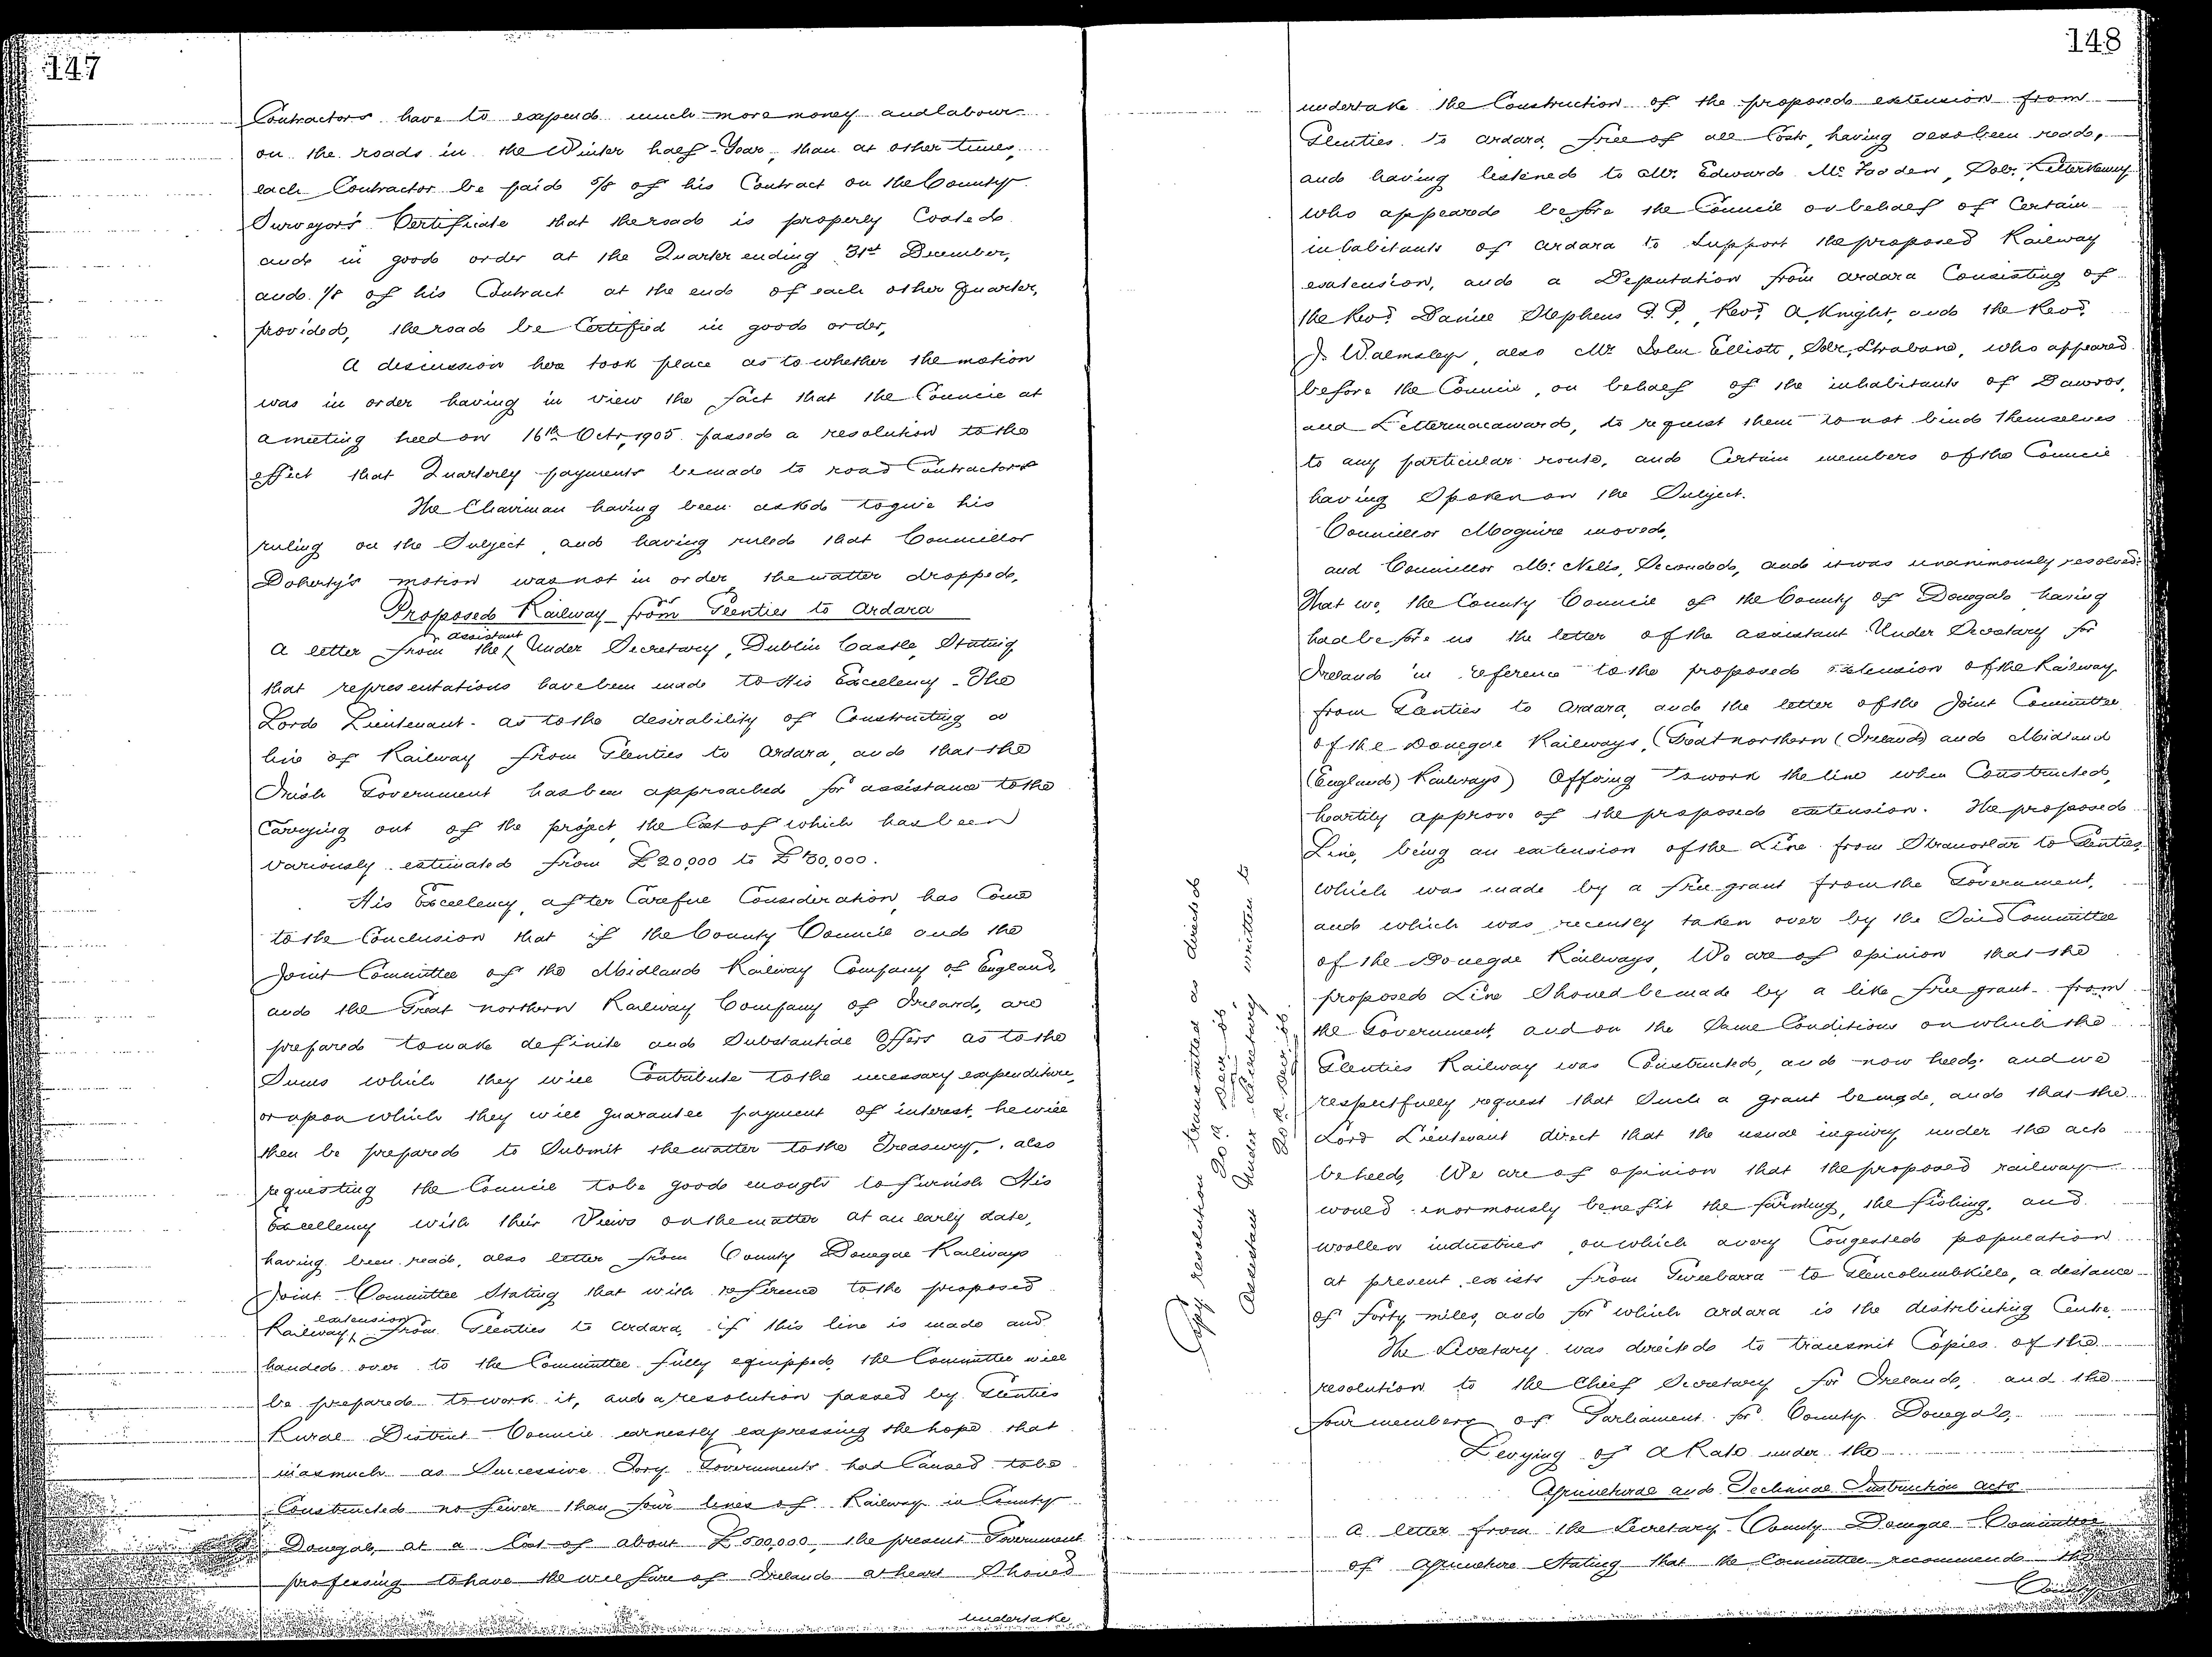 147
Contractors have to expend much more money and labour
on the roads in the Winter half-Year, than at other times,
each Contractor be paid 5/8 of his Contract on the County
Surveyor's Certificate that the road is properly Coated
and in good order at the Quarter ending 31st December,
and 1/8 of his Contract at the end of each other Quarter,
provided, the road be Certified in good order,
A discussion here took place as to whether the motion
was in order having in view the fact that the Council at
a meeting held on 16th Octr, 1905 passed a resolution to the
effect that Quarterly payments be made to road Contractors
The Chairman having been asked to give his
ruling on the Subject, and having ruled that Councillor
Doherty's motion was not in order the matter dropped.
Proposed Railway from Glenties to Ardara
A letter from the assistant Under Secretary, Dublin Castle, Stating
that representations have been made to His Excellency - The
Lord Lieutenant - as to the desirability of Constructing a
line of Railway from Glenties to Ardara, and that the
Irish Government has been approached for assistance to the
Carrying out of the project, the Cost of which has been
variously estimated from £20,000 to
His Excellency, after Careful Consideration, has Come
to the Conclusion that if the County Council and the
Joint Committee of the Midland Railway Company of England,
and the Great northern Railway Company of Ireland, are
prepared to make definite and Substantial Offers as to the
Sums which they will Contribute to the necessary expenditure,
or upon which they will guarantee payment of interest, he will
then be prepared to Submit the matter to the Treasury, also
requesting the Council to be good enough to furnish His
Excellency with their Views on the matter at an early date,
having been read, also letter from County Donegal Railways
Joint Committee Stating that with reference to the proposed
Railway extension from Glenties to Ardara, if this line is made and
handed over to the Committee fully equipped, the Committee will
be prepared to work it, and a resolution passed by Glenties
Rural District Council earnestly expressing the hope that
inasmuch as Successive Tory Governments had Caused to be
Constructed no fewer than four lines of Railway in County
Donegal, at a Cost of about £500,000, the present Government
professing to have the welfare of Ireland at heart Should
undertake
148
undertake the Construction of the proposed extension from
Glenties to Ardara, free of all Cost, having also been read,
and having listened to Mr. Edward McFadden, Solr., Letterkenny
who appeared before the Council on behalf of Certain
inhabitants of Ardara to Support the proposed Railway
extension, and a Deputation from Ardara Consisting of
the Revd. Daniel Stephens P.P., Revd. A. Knight, and the Revd.
J. Walmsley, also Mr John Elliott, Solr, Strabane, who appeared
before the Council, on behalf of the inhabitants of Dawros,
and Lettermacaward, to request them to not bind themselves
to any particular route, and Certain members of the Council
having Spoken on the Subject.
Councillor Maguire moved,
and Councillor Mc. Nelis, Seconded, and it was unanimously resolved:
That we, the County Council of the County of Donegal having
had before us the letter of the assistant Under Secretary for
Ireland in reference to the proposed extension of the Railway
from Glenties to Ardara, and the letter of the Joint Committee
of the Donegal Railways, (Great northern (Ireland) and Midland
(England) Railways) Offering to work the line when Constructed,
heartily approve of the proposed extension. The proposed
Line, being an extension of the Line from Stranorlar to Glenties,
which was made by a free grant from the Government,
and which was recently taken over by the Said Committee
of the Donegal Railways, We are of opinion that the
proposed Line Should be made by a like free grant from
the Government, and on the Same Conditions on which the
Glenties Railway was Constructed, and now held; and we
respectfully request that Such a grant be made, and that the
Lord Lieutenant direct that the usual inquiry under the acts
be held, We are of opinion that the proposed railway
would enormously benefit the farming, the fishing, and
woollen industries, on which a very Congested population
at present exists from Gweebarra to Glencolumbkille, a distance
of forty miles, and for which Ardara is the distributing Centre.
The Secretary was directed to transmit Copies of the
resolution to the Chief Secretary for Ireland, and the
four members of Parliament for County Donegal,
Levying of a Rate under the
Agricultural and Technical Instruction Acts
A letter from the Secretary County Donegal Committee
of Agriculture Stating that the Committee recommend the
County
Copy resolution transmitted as directed
20th Decr. 06,
Assistant Under Secretary written to
20th Decr. 06